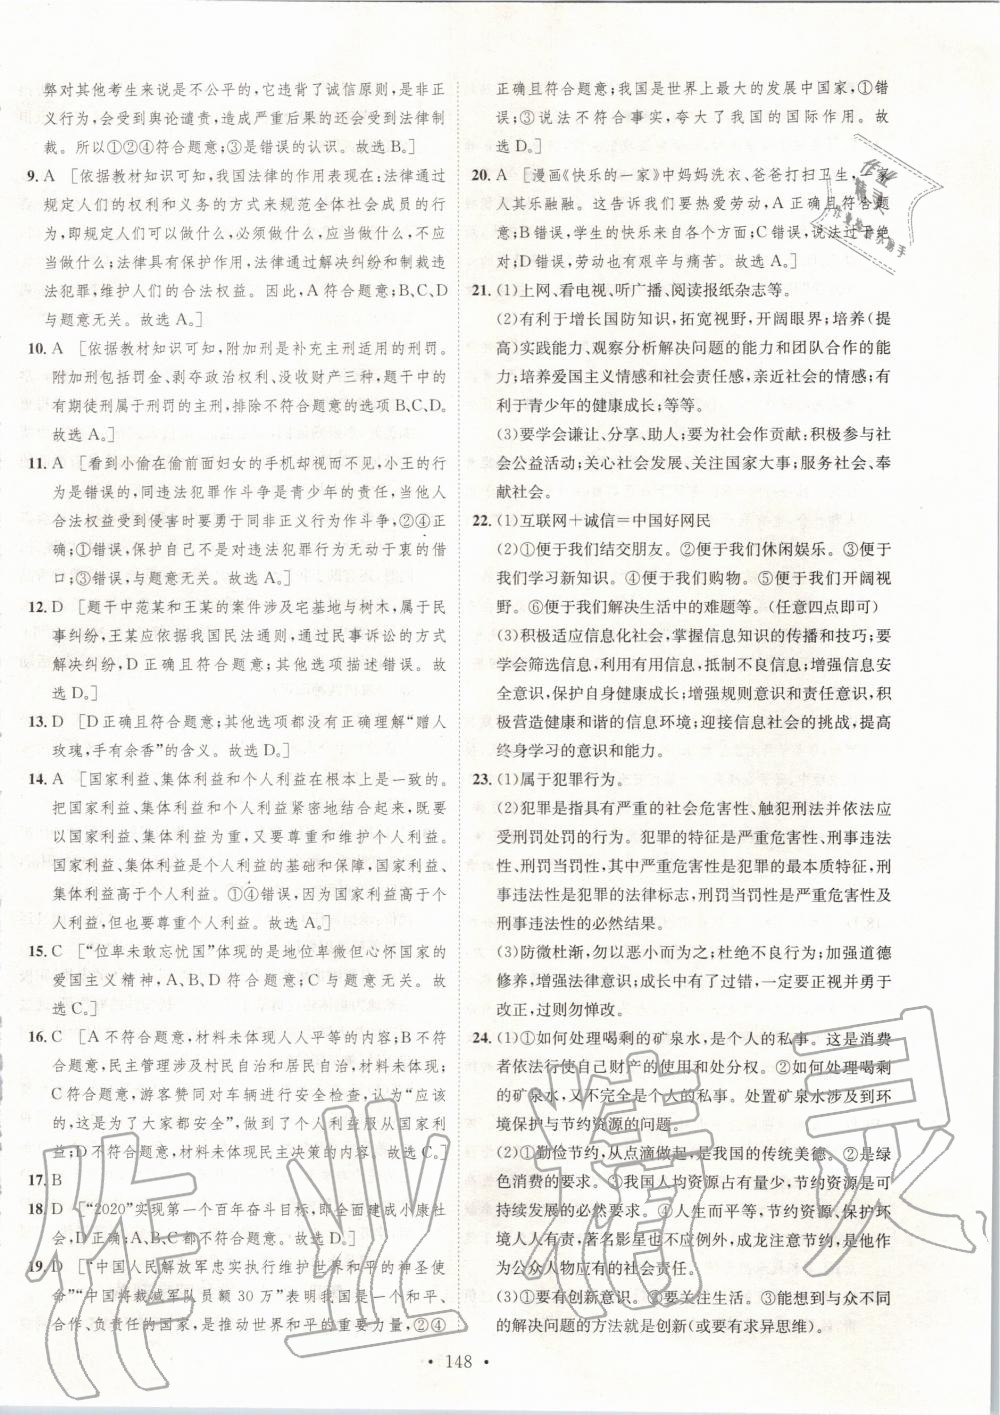 弊对其他考生来说是不公平的,它违背了诚信原则,是非正
义行为,会受到舆论谴责,造成严重后果的还会受到法律制
裁。所以①②④符合题意;③是错误的认识。故选B。]
9. A [依据教材知识可知,我国法律的作用表现在:法律通过
规定人们的权利和义务的方式来规范全体社会成员的行
为,即规定人们可以做什么,必须做什么,应当做什么,不
应当做什么;法律具有保护作用,法律通过解决纠纷和制裁
违法犯罪,维护人们的合法权益。因此,A符合题意;B、C、D
与题意无关。故选A。]
10. A [依据教材知识可知,附加刑是补充主刑适用的刑罚。
附加刑包括罚金、剥夺政治权利、没收财产三种,题干中的
有期徒刑属于刑罚的主刑,排除不符合题意的选项B、C、D。
故选A。]
11. A [看到小偷在偷前面妇女的手机却视而不见,小王的行
为是错误的,同违法犯罪作斗争是青少年的责任,当他人
合法权益受到侵害时要勇于同非正义行为作斗争,②④正
确;①错误,保护自己不是对违法犯罪行为无动于衷的借
口;③错误,与题意无关。故选A。]
12. D [题干中范某和王某的案件涉及宅基地与树木,属于民
事纠纷,王某应依据我国民法通则,通过民事诉讼的方式
解决纠纷,D正确且符合题意;其他选项描述错误。故
选D。]
13. D [D正确且符合题意;其他选项都没有正确理解“赠人
玫瑰,手有余香”的含义。故选D。]
14. A [国家利益、集体利益和个人利益在根本上是一致的。
把国家利益、集体利益和个人利益紧密地结合起来,既要
以国家利益、集体利益为重,又要尊重和维护个人利益。
国家利益、集体利益是个人利益的基础和保障,国家利益、
集体利益高于个人利益。①④错误,因为国家利益高于个
人利益,但也要尊重个人利益。故选A。]
15. C [“位卑未敢忘忧国”体现的是地位卑微但心怀国家的
爱国主义精神,A、B、D符合题意;C与题意无关。故
选C。]
16. C [A不符合题意,材料未体现人人平等的内容;B不符
合题意,民主管理涉及村民自治和居民自治,材料未体现;
C符合题意,游客赞同对车辆进行安全检查,认为“有必
要,这是为了大家都安全”,做到了个人利益服从国家利
益;D不符合题意,材料未体现民主决策的内容。故选C。]
17. B
18. D [“2020”实现第一个百年奋斗目标,即全面建成小康社
会,D正确;A、B、C都不符合题意。故选D。]
19. D [“中国人民解放军忠实执行维护世界和平的神圣使
命”“中国将裁减军队员额30万”表明我国是一个和平、
合作、负责任的国家,是推动世界和平的重要力量,②④
正确且符合题意;我国是世界上最大的发展中国家,①错
误;③说法不符合事实,夸大了我国的国际作用。故
选D。]
20. A [漫画《快乐的一家》中妈妈洗衣、爸爸打扫卫生,一家
人其乐融融。这告诉我们要热爱劳动,A正确且符合题
意;B错误,学生的快乐来自各个方面;C错误,说法过于绝
对;D错误,劳动也有艰辛与痛苦。故选A。]
21. (1)上网、看电视、听广播、阅读报纸杂志等。
(2)有利于增长国防知识,拓宽视野,开阔眼界;培养(提
高)实践能力、观察分析解决问题的能力和团队合作的能
力;培养爱国主义情感和社会责任感,亲近社会的情感;有
利于青少年的健康成长;等等。
(3)要学会谦让、分享、助人;要为社会作贡献:积极参与社
会公益活动;关心社会发展、关注国家大事;服务社会、奉
献社会。
22. (1)互联网+诚信=中国好网民
(2)①便于我们结交朋友。②便于我们休闲娱乐。③便于
我们学习新知识。④便于我们购物。⑤便于我们开阔视
野。⑥便于我们解决生活中的难题等。(任意四点即可)
(3)积极适应信息化社会,掌握信息知识的传播和技巧;要
学会筛选信息,利用有用信息,抵制不良信息;增强信息安
全意识,保护自身健康成长;增强规则意识和法律意识,积
极营造健康和谐的信息环境;迎接信息社会的挑战,提高
终身学习的意识和能力。
23. (1)属于犯罪行为。
(2)犯罪是指具有严重的社会危害性、触犯刑法并依法应
受刑罚处罚的行为。犯罪的特征是严重危害性、刑事违法
性、刑罚当罚性,其中严重危害性是犯罪的最本质特征,刑
事违法性是犯罪的法律标志,刑罚当罚性是严重危害性及
刑事违法性的必然结果。
(3)防微杜渐,勿以恶小而为之;杜绝不良行为;加强道德
修养,增强法律意识;成长中有了过错,一定要正视并勇于
改正,过则勿惮改。
24. (1)①如何处理喝剩的矿泉水,是个人的私事。这是消费
者依法行使自己财产的使用和处分权。②如何处理喝剩
的矿泉水,又不完全是个人的私事。处置矿泉水涉及到环
境保护与节约资源的问题。
(2)①勤俭节约,从点滴做起,是我国的传统美德。②是绿
色消费的要求。③我国人均资源占有量少,节约资源是可
持续发展的必然要求。④人生而平等,节约资源、保护环
境人人有责,著名影星也不应例外,成龙注意节约,是他作
为公众人物应有的社会责任。
(3)①要有创新意识。②要关注生活。③能想到与众不同
的解决问题的方法就是创新(或要有求异思维)。
• 148 •
作业精灵